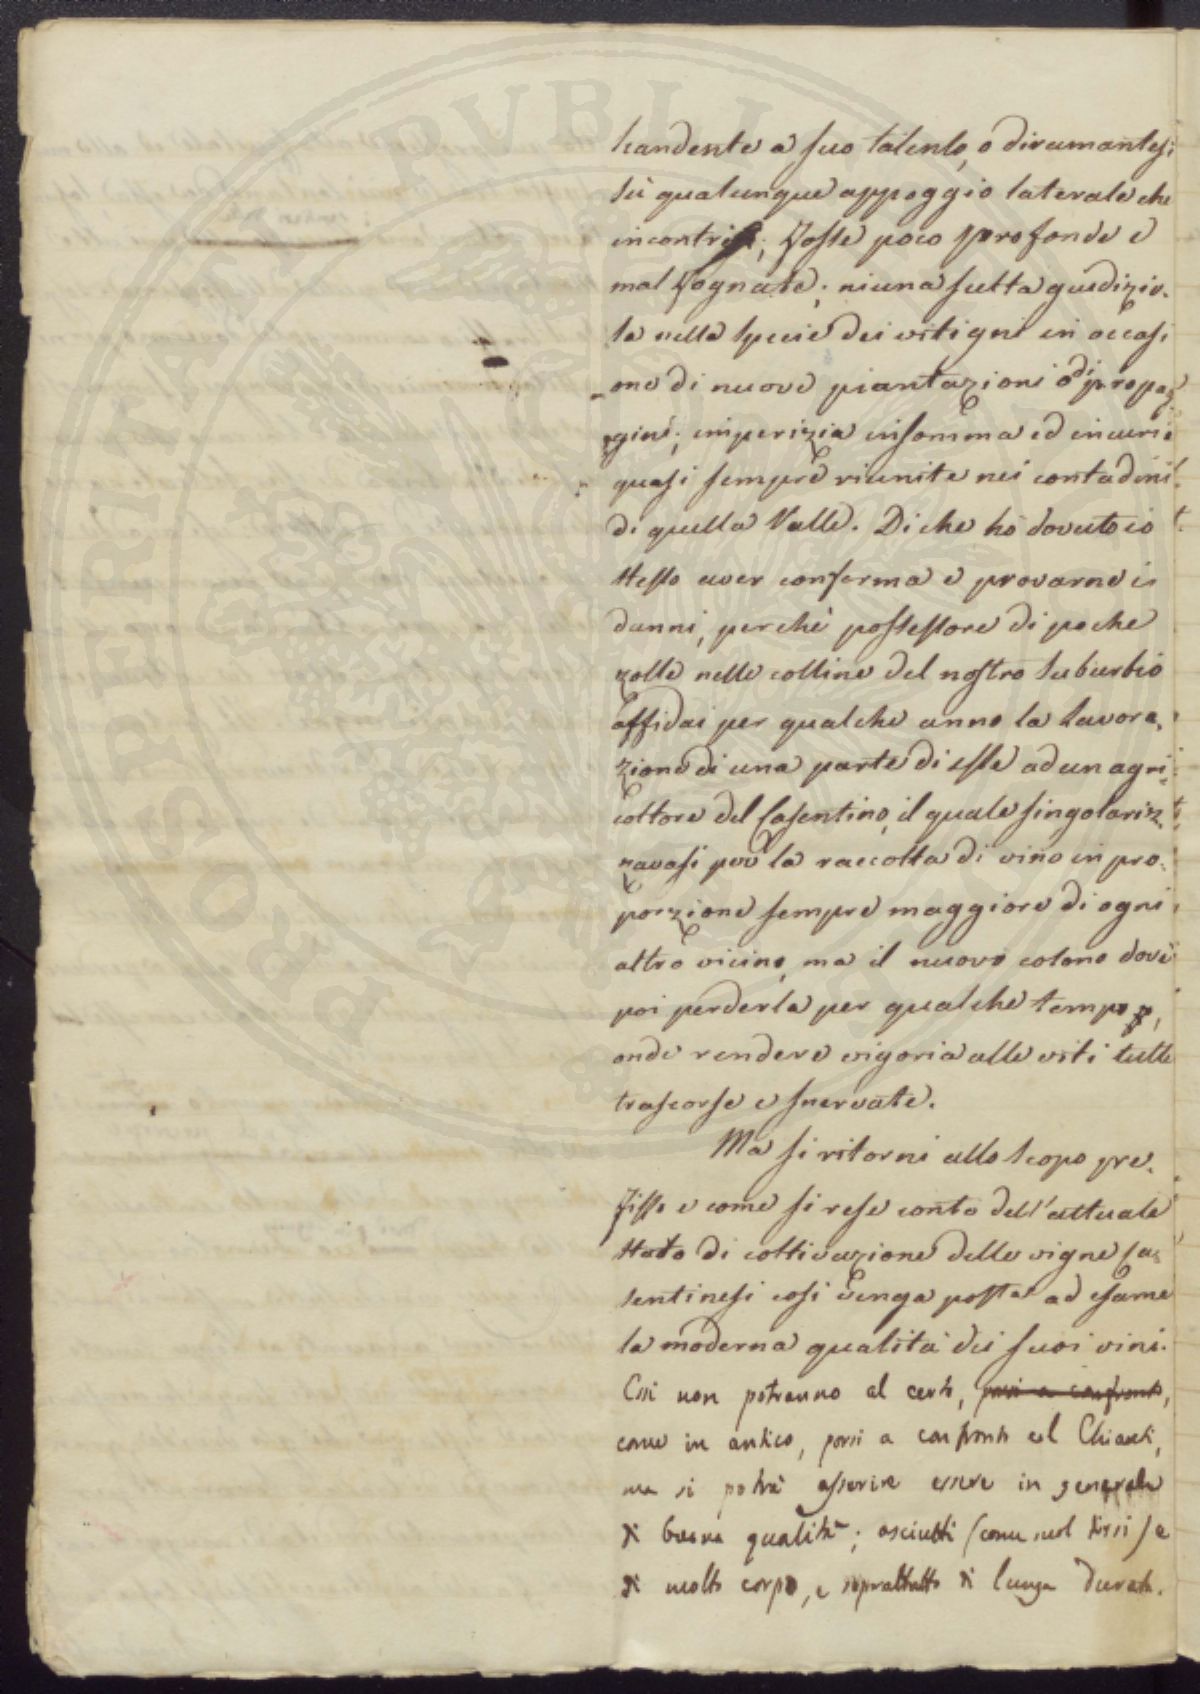 scandente a suo talento, o diramantesi
sù qualunque appoggio laterale che
incontri; Fosse poco profonde e
mal fognate; niuna scelta giudizio-
sa nella specie dei vitigni in occasi
one di nuove piantazioni o di propag
gini; imperizia insomma ed incuria
quasi sempre riunite nei contadini
di quella Valle. Di che hò dovuto io
stesso aver conferma e provarne i
danni, perchè possessore di poche
zolle nelle colline del nostro suburbio
affidai per qualche anno la lavora-
zione di una parte di esse ad un agri-
coltore del Casentino, il quale singolariz-
zavasi per la raccolta di vino in pro-
porzione sempre maggiore di ogni
altro vicino, ma il nuovo colono dovè
poi perderla per qualche tempo,
onde rendere vigoria alle viti tutte
trascorse e snervate.
Ma si ritorni allo scopo pre-
fisso e come si rese conto dell'attuale
stato di coltivazione delle vigne Ca-
sentinesi così venga posta ad esame
la moderna qualità dei suoi vini.
Essi non potranno al certo, porsi a confronto,
come in antico, porsi a confronto col Chianti,
ma si potrà asserire essere in generale
di buona qualità; asciutti (come suol dirsi) e
di molto corpo, e soprattutto di lunga durata.
PROSPERITATI PVBLI